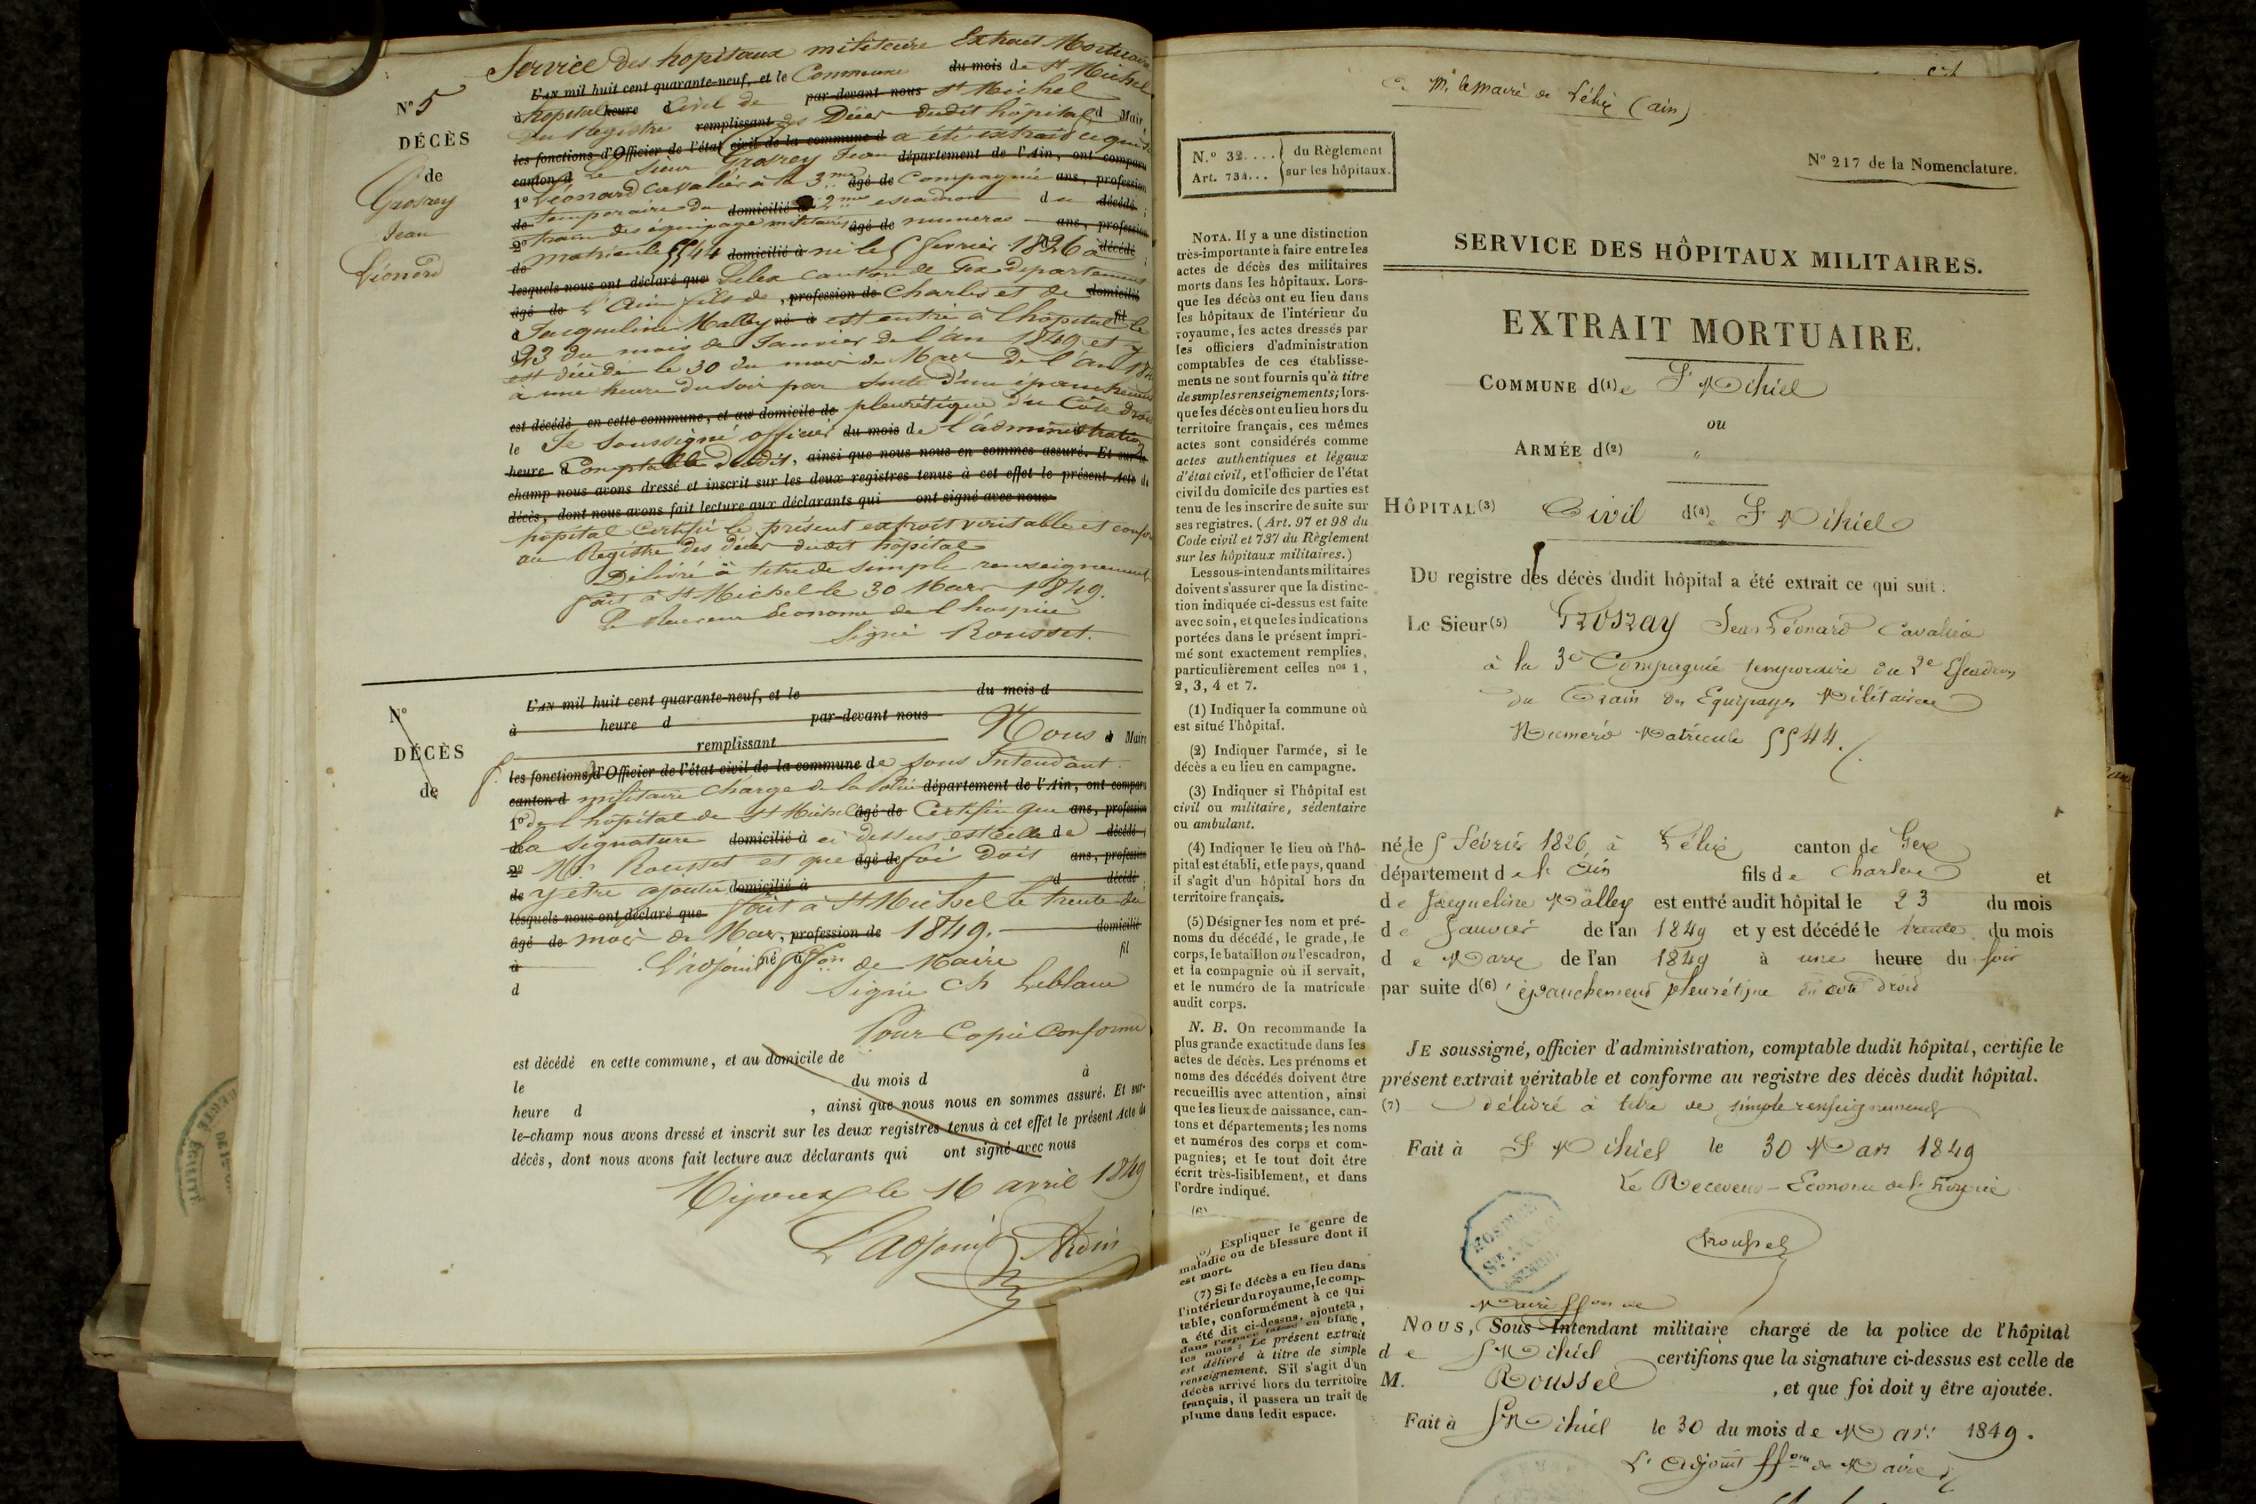 Service des hopitaux militaire Extrait Mortuaire
L'AN mil huit cent quarante-neuf, et le Commune du mois de St Michel
N° 5
à hopital heure Civil de par-devant nous St Michel
Du Registre remplissant des Décès dudit hôpital d Maire
DÉCÈS
les fonctions d'Officier de l'état civil de la commune d a été extrait ce qui
de
canton d Le Sieur Grosrey Jean département de l'Ain, ont comparu
Grosrey
1° Léonard Cavalier à la 3me âgé de Compagnie ans, profession
Jean
de temporaire du domicilié à 2me escadron du décédé
Léonard
2° train des équipage militaires âgé de numeros ans, profession
de matricule 5544 domicilié à né le 5 février 1826 à décédé
lesquels nous ont déclaré que Lelex canton de Gex departement
âgé de L'Ain fils de, profession de Charles et de domicilié
à Jacqueline Malley né à est entré à l'hôpital fil le
d 23 du mois de Janvier de l'an 1849 et y
est décédé le 30 du mois de Mars de l'an 184
à une heure du soir par suite d'un épanchement
est décédé en cette commune, et au domicile de pleurétique du Côté droit
le Je soussigné officier du mois de l'administration
heure d Comptable dudit, ainsi que nous nous en sommes assuré. Et sur-le
champ nous avons dressé et inscrit sur les deux registres tenus à cet effet le présent Acte de
décès, dont nous avons fait lecture aux déclarants qui ont signé avec nous
hôpital Certifié le présent extrait véritable et confor
au Registre des décès dudit hôpital
Délivré à titre de simple renseignement
fait à St Michel le 30 Mars 1849.
Le Receveur Econome de l'hospice
Signé Rousset.
L'AN mil huit cent quarante-neuf, et le du mois d
N°
à heure d par-devant nous
remplissant Nous d Maire
DÉCÈS
les fonctions d'Officier de l'état civil de la commune de sous Intendant
de
canton d militaire Chargé de la police département de l'Ain, ont comparu
1° de l'hôpital de St Michel âgé de Certifie que ans, profession
de la signature domicilié à ci dessus est celle de décédé
2° Mr. Rousset et que âgé de foi doit ans, profession
de y etre ajoutée domicilié à d décédé
lesquels nous ont déclaré que fait à St Michel le trente du
âgé de mois de Mars, profession de 1849. domicilié
à L'adjoint né à ffon de Maire fil
d Signé Ch Leblanc
Pour Copie Conforme
est décédé en cette commune, et au domicile de
le du mois d à
heure d , ainsi que nous nous en sommes assuré. Et sur-
le-champ nous avons dressé et inscrit sur les deux registres tenus à cet effet le présent Acte de
décès, dont nous avons fait lecture aux déclarants qui ont signé avec nous
Mijoux le 16 avril 1849
L'adjoint
Mr le Maire de Lélex (ain)
N.° 32.... du Règlement
Art. 734... sur les hôpitaux.
N° 217 de la Nomenclature.
SERVICE DES HÔPITAUX MILITAIRES.
EXTRAIT MORTUAIRE.
COMMUNE d(1)e St Mihiel
ou
ARMÉE d(2) "
HÔPITAL(3) Civil d(4)e St Mihiel
DU registre des décès dudit hôpital a été extrait ce qui suit :
Le Sieur(5) Grosray Jean Léonard Cavalier
à la 3e Compagnie temporaire du 2e Escadron
du Train des Equipages Militaires
Numéro Matricule 5544.
né le 5 Février 1826 à Lélix canton de Gex
département de l'Ain fils de Charles et
de Jacqueline Mälley est entré audit hôpital le 23 du mois
de Janvier de l'an 1849 et y est décédé le trente du mois
de Mars de l'an 1849 à une heure du soir
par suite d(6)'épanchement pleurétique du coté droit
JE soussigné, officier d'administration, comptable dudit hôpital, certifie le
présent extrait véritable et conforme au registre des décès dudit hôpital.
(7) délivré à titre de simple renseignement
Fait à St Mihiel le 30 Mars 1849
Le Receveur-Econome de l'hospice
Roussel
Maire ffon de
NOUS, Sous-Intendant militaire chargé de la police de l'hôpital
de St Mihiel certifions que la signature ci-dessus est celle de
M. Roussel , et que foi doit y être ajoutée.
Fait à St Mihiel le 30 du mois de Mars 1849.
L'adjoint ffon de Maire
NOTA. Il y a une distinction
très-importante à faire entre les
actes de décès des militaires
morts dans les hôpitaux. Lors-
que les décès ont eu lieu dans
les hôpitaux de l'intérieur du
royaume, les actes dressés par
les officiers d'administration
comptables de ces établisse-
ments ne sont fournis qu'à titre
de simples renseignements; lors-
que les décès ont eu lieu hors du
territoire français, ces mêmes
actes sont considérés comme
actes authentiques et légaux
d'état civil, et l'officier de l'état
civil du domicile des parties est
tenu de les inscrire de suite sur
ses registres. (Art. 97 et 98 du
Code civil et 737 du Règlement
sur les hôpitaux militaires.)
Les sous-intendants militaires
doivent s'assurer que la distinc-
tion indiquée ci-dessus est faite
avec soin, et que les indications
portées dans le présent impri-
mé sont exactement remplies,
particulièrement celles nos 1,
2, 3, 4 et 7.
(1) Indiquer la commune où
est situé l'hôpital.
(2) Indiquer l'armée, si le
décès a eu lieu en campagne.
(3) Indiquer si l'hôpital est
civil ou militaire, sédentaire
ou ambulant.
(4) Indiquer le lieu où l'hô-
pital est établi, et le pays, quand
il s'agit d'un hôpital hors du
territoire français.
(5) Désigner les nom et pré-
noms du décédé, le grade, le
corps, le bataillon ou l'escadron,
et la compagnie où il servait,
et le numéro de la matricule
audit corps.
N. B. On recommande la
plus grande exactitude dans les
actes de décès. Les prénoms et
noms des décédés doivent être
recueillis avec attention, ainsi
que les lieux de naissance, can-
tons et départements; les noms
et numéros des corps et com-
pagnies; et le tout doit être
écrit très-lisiblement, et dans
l'ordre indiqué.
(6) Expliquer le genre de
maladie ou de blessure dont il
est mort.
(7) Si le décès a eu lieu dans
l'intérieur du royaume, le comp-
table, conformément à ce qui
a été dit ci-dessus, ajoutera,
dans l'espace laissé en blanc,
les mots : Le présent extrait
est délivré à titre de simple
renseignement. S'il s'agit d'un
décès arrivé hors du territoire
français, il passera un trait de
plume dans ledit espace.